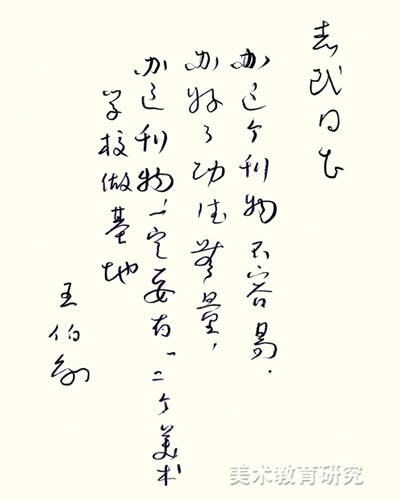 志民同志
办这个刊物不容易.
办好了功德无量,
办这刊物一定要有一二个美术
学校做基地
王伯敏
美术教育研究